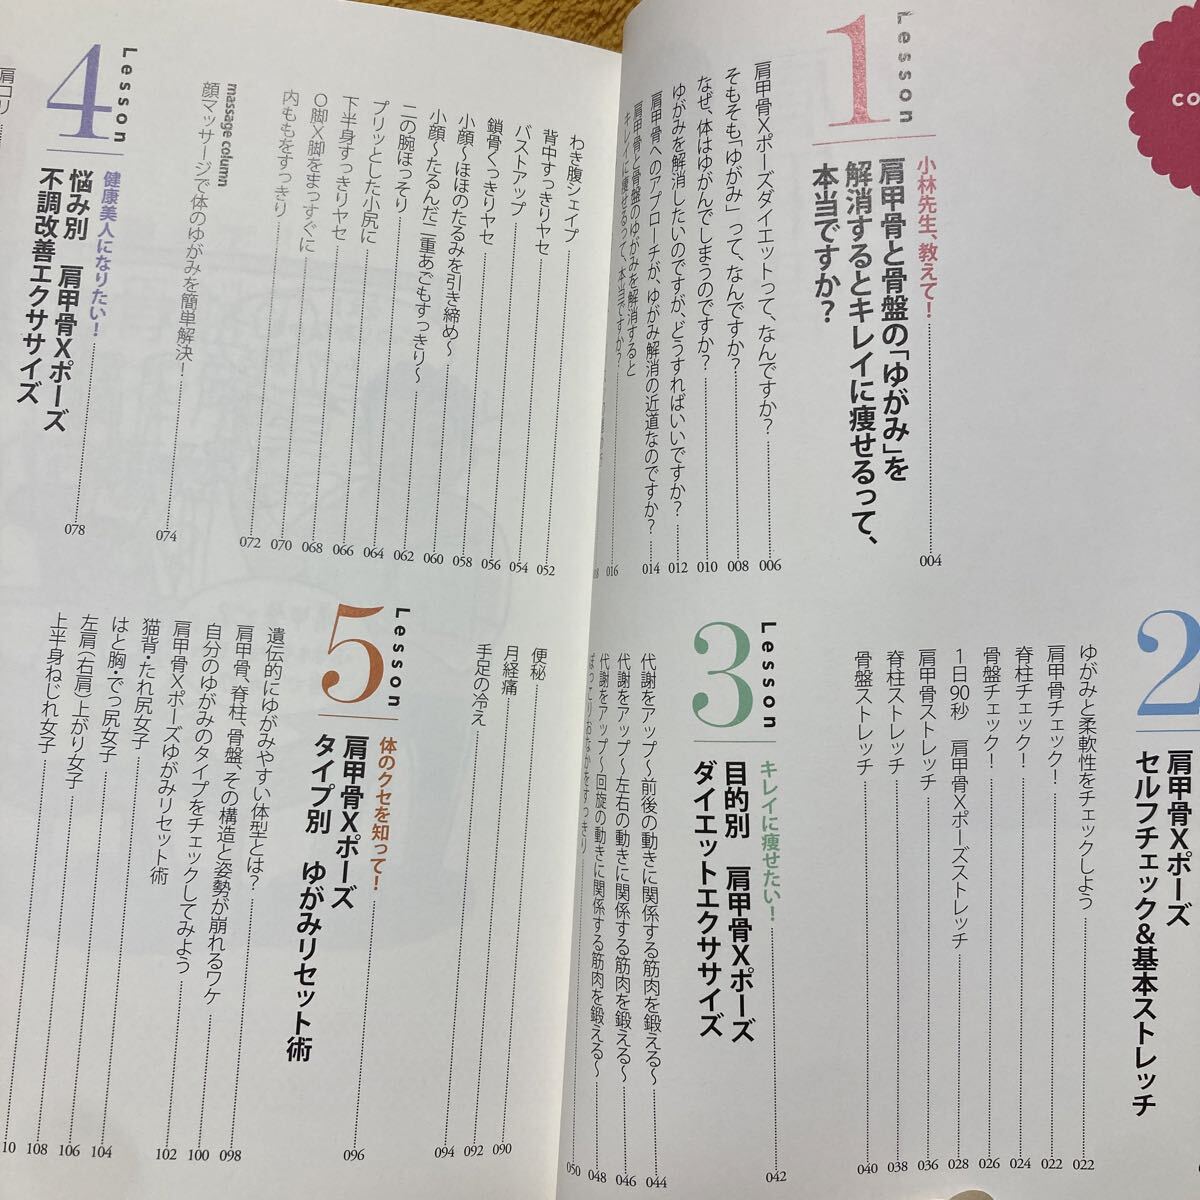 CO
Lesson
1
小林先生、教えて！
肩甲骨と骨盤の「ゆがみ」を
解消するとキレイに痩せるって、
本当ですか？
004
肩甲骨Xポーズダイエットって、なんですか？ 006
そもそも「ゆがみ」って、なんですか？ 008
なぜ、体はゆがんでしまうのですか？ 010
ゆがみを解消したいのですが、どうすればいいですか？ 012
肩甲骨へのアプローチが、ゆがみ解消の近道なのですか？ 014
肩甲骨と骨盤のゆがみを解消すると
キレイに痩せるって、本当ですか？ 016
2
肩甲骨Xポーズ
セルフチェック&基本ストレッチ
ゆがみと柔軟性をチェックしよう 022
肩甲骨チェック！ 022
脊柱チェック！ 024
骨盤チェック！ 026
1日90秒 肩甲骨Xポーズストレッチ 028
肩甲骨ストレッチ 036
脊柱ストレッチ 038
骨盤ストレッチ 040
Lesson
3
キレイに痩せたい！
目的別 肩甲骨Xポーズ
ダイエットエクササイズ
042
代謝をアップ〜前後の動きに関係する筋肉を鍛える〜 044
代謝をアップ〜左右の動きに関係する筋肉を鍛える〜 046
代謝をアップ〜回旋の動きに関係する筋肉を鍛える〜 048
ぽっこりおなかをすっきり 050
わき腹シェイプ 052
背中すっきりヤセ 054
バストアップ 056
鎖骨くっきりヤセ 058
小顔〜ほほのたるみを引き締め〜 060
小顔〜たるんだ二重あごもすっきり〜 062
二の腕ほっそり 064
プリッとした小尻に 066
下半身すっきりヤセ 068
O脚X脚をまっすぐに 070
内ももをすっきり 072
massage column
顔マッサージで体のゆがみを簡単解決！ 074
Lesson
4
健康美人になりたい！
悩み別 肩甲骨Xポーズ
不調改善エクササイズ
078
肩コリ
便秘 090
月経痛 092
手足の冷え 094
Lesson
5
体のクセを知って！
肩甲骨Xポーズ
タイプ別 ゆがみリセット術
096
遺伝的にゆがみやすい体型とは？
肩甲骨、脊柱、骨盤、その構造と姿勢が崩れるワケ 098
自分のゆがみのタイプをチェックしてみよう 100
肩甲骨Xポーズゆがみリセット術 102
猫背・たれ尻女子
はと胸・でっ尻女子 104
左肩（右肩）上がり女子 106
上半身ねじれ女子 108
10